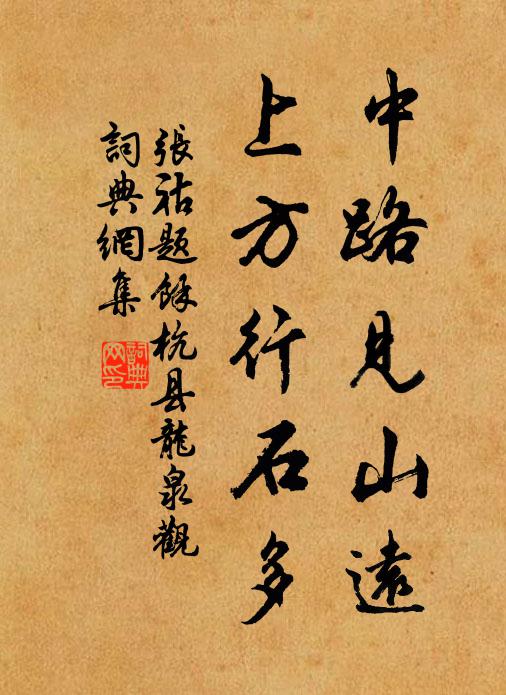 中路見山遠
上方行石多
張祜題餘杭县龍泉觀
詞典網集
詞典網印